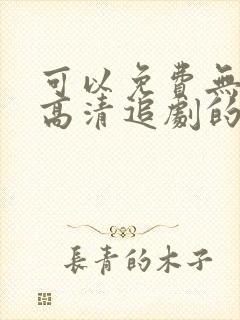 可以免費無
高清追劇的
長青的木子